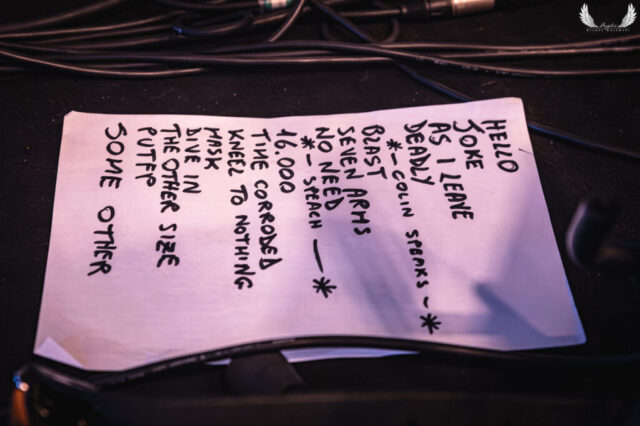 HELLO
JOKE
AS I LEAVE
DEADLY
*- COLIN SPEAKS ~*
BLAST
SEVEN ARMS
NO NEED
*- SPEACH —*
16.000
TIME CORRODED
KNEEL TO NOTHING
MASK
DIVE IN
THE OTHER SIZE
PUTFP
SOME OTHER